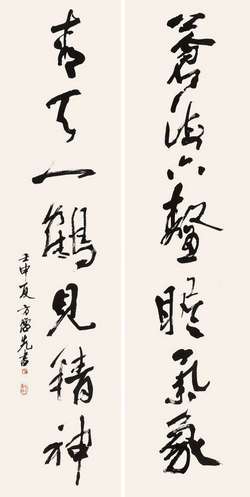 蒼海六鰲瞻氣象
青天一鶴見精神
壬申夏方先書